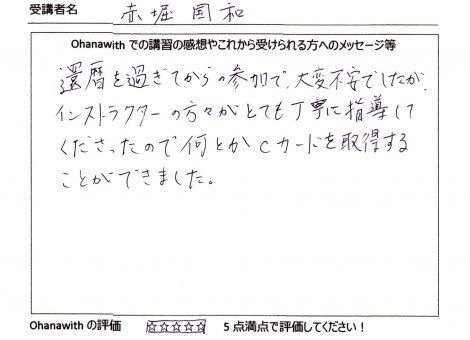 受講者名 赤堀 国和
Ohanawith での講習の感想やこれから受けられる方へのメッセージ等
還暦を過ぎてからの参加で、大変不安でしたが、
インストラクターの方々がとても丁寧に指導して
くださったので何とか Cカードを取得する
ことができました。
Ohanawith の評価 ☆☆☆☆☆ 5 点満点で評価してください！